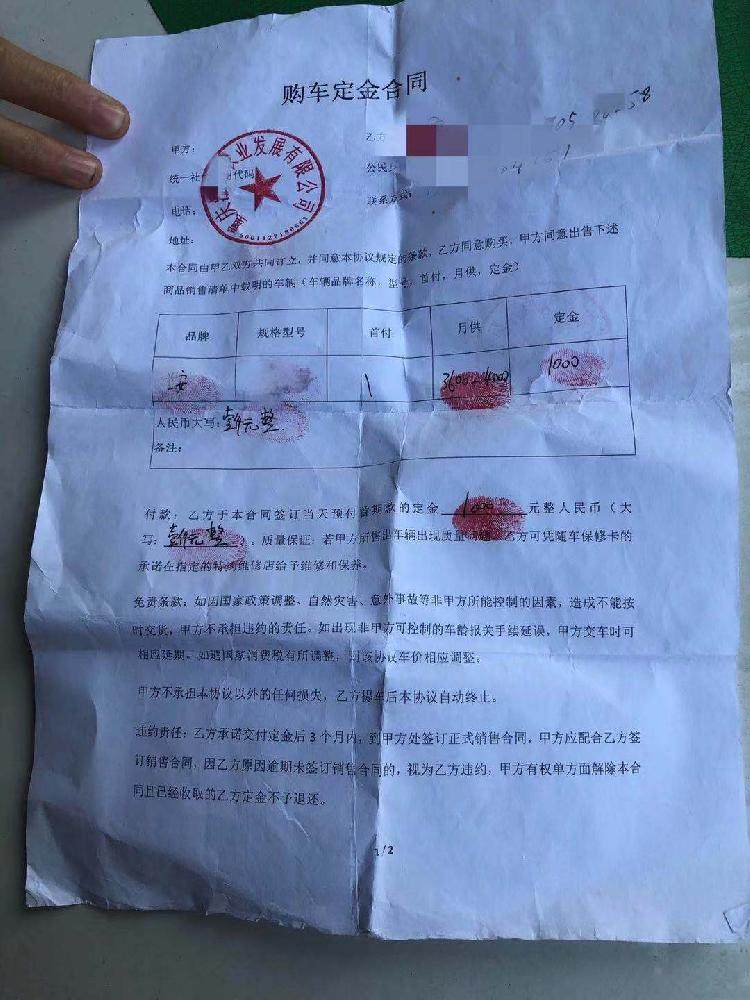 购车定金合同
甲方：
乙方
统一社 代码
公民
电话：
联系方式
地址：
业发展有限公司
本合同由甲乙双方共同订立，并同意本协议规定的条款，乙方同意购买，甲方同意出售下述
商品销售清单中载明的车辆（车辆品牌名称，型号，首付，月供，定金）
品牌 规格型号 首付 月供 定金
1000
人民币大写：壹仟元整
备注：
付款：乙方于本合同签订当天预付首期款的定金 1000 元整人民币（大
写：壹仟元整 ，质量保证：若甲方所售出车辆出现质量问题，乙方可凭随车保修卡的
承诺在指定的特约维修店给予维修和保养。
免责条款：如因国家政策调整、自然灾害、意外事故等非甲方所能控制的因素，造成不能按
时交货，甲方不承担违约的责任。如出现非甲方可控制的车龄报关手续延误，甲方交车时可
相应延期。如遇国家消费税有所调整，则该协议车价相应调整。
甲方不承担本协议以外的任何损失，乙方提车后本协议自动终止。
违约责任：乙方承诺交付定金后 3 个月内，到甲方处签订正式销售合同，甲方应配合乙方签
订销售合同，因乙方原因逾期未签订销售合同的，视为乙方违约，甲方有权单方面解除本合
同且已经收取的乙方定金不予退还。
1/2